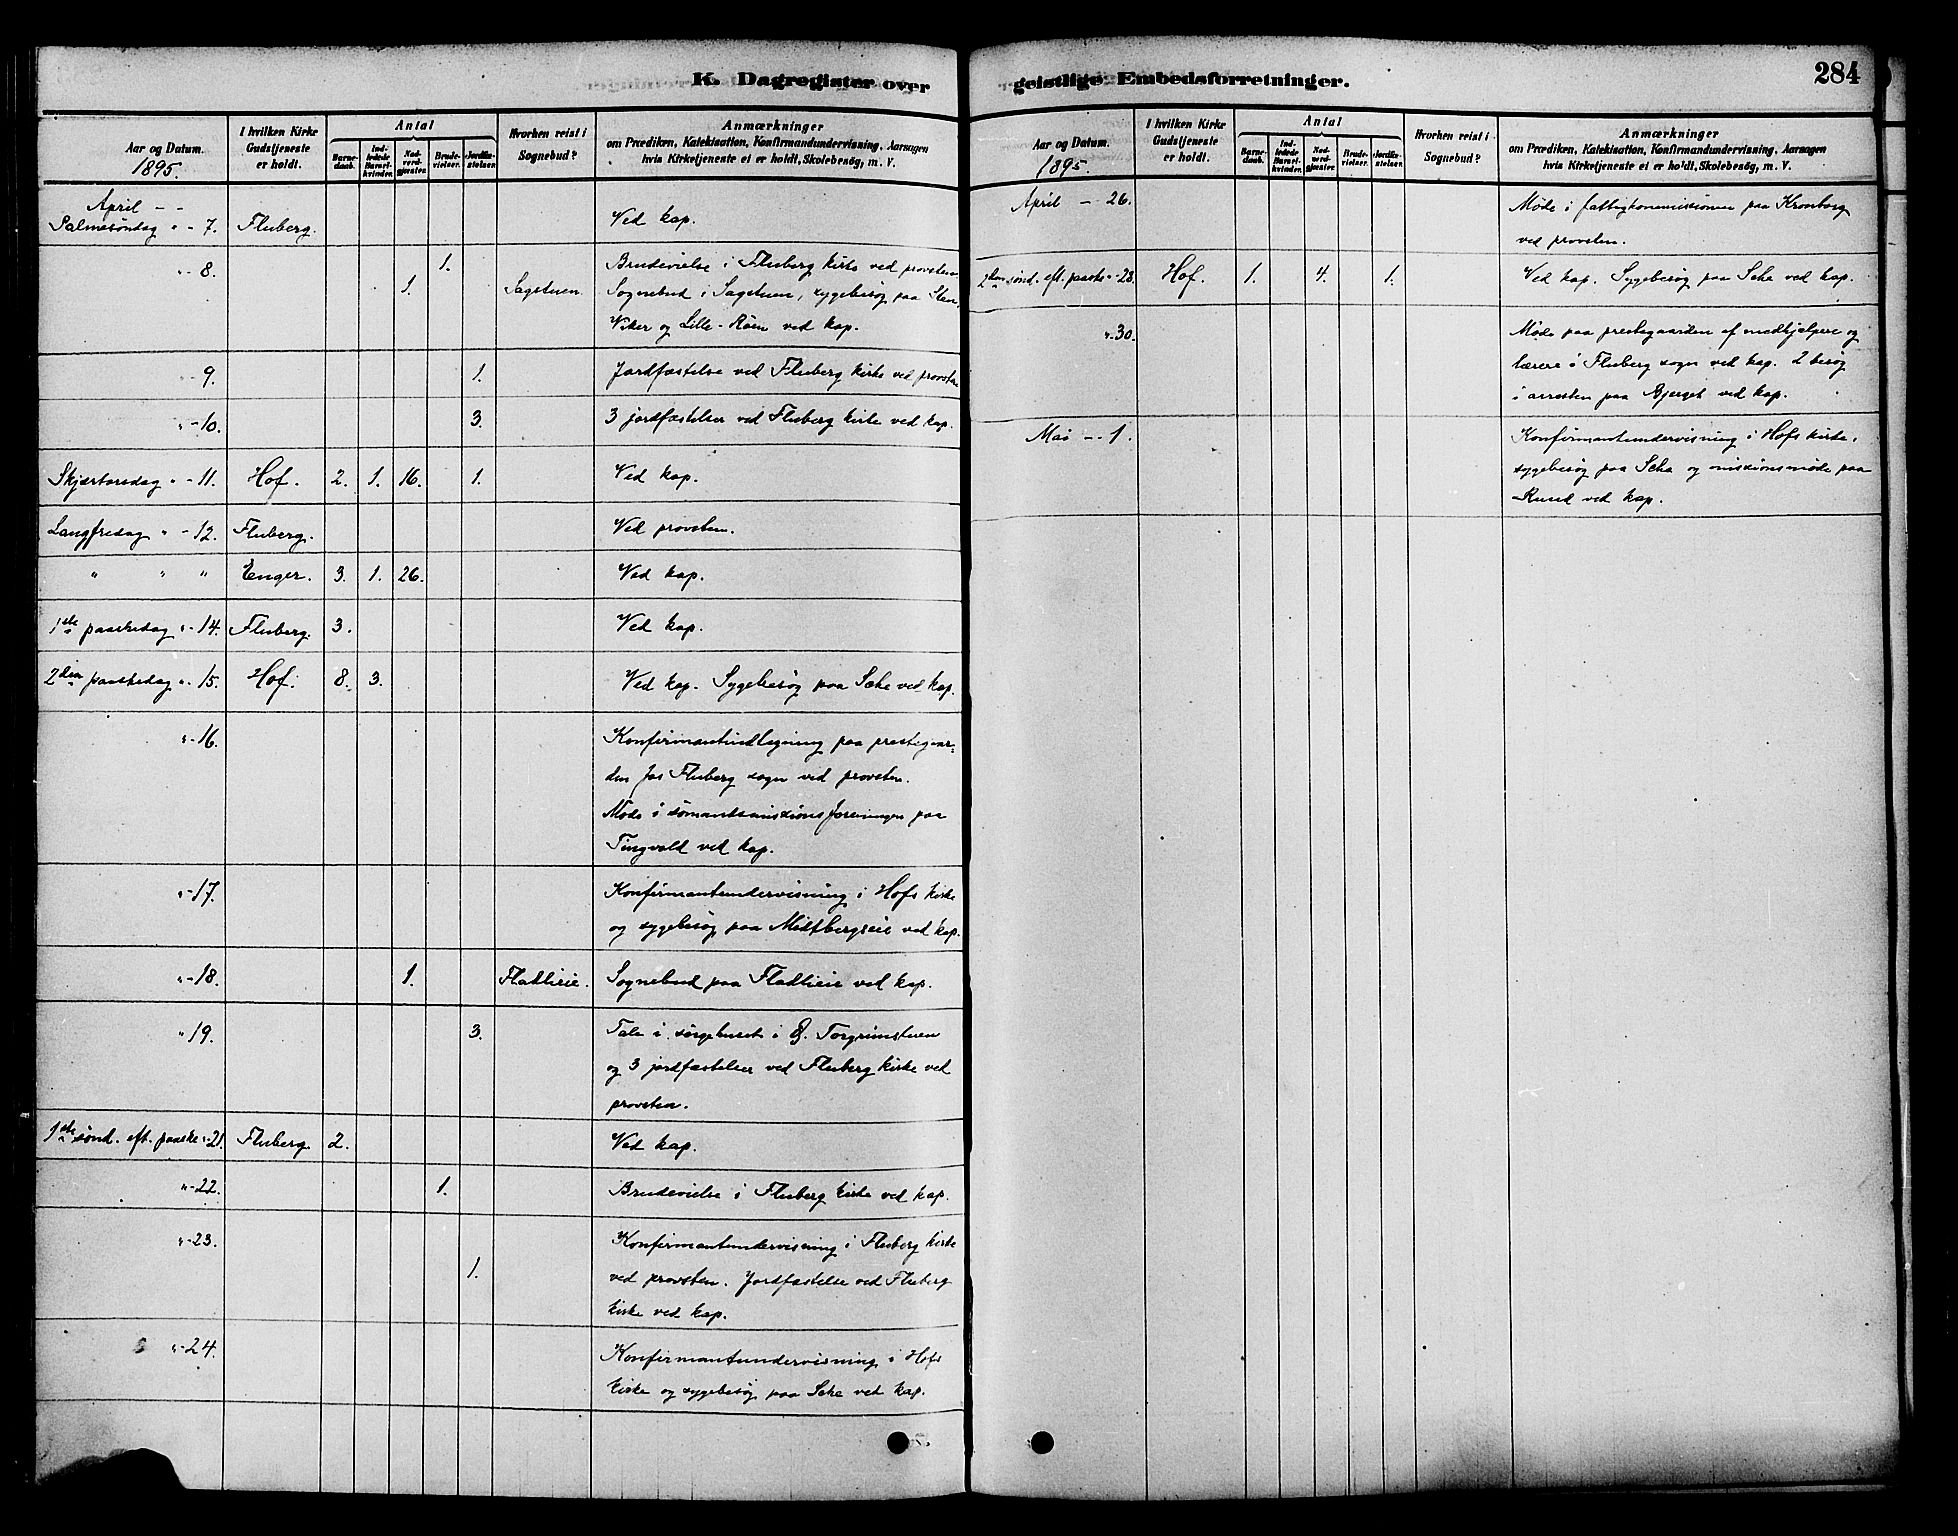 K. Dagregister over
Aar og Datum.
1895.
I hvilken Kirke Gudstjeneste er holdt.
Antal
Barne-daab.
Ind-ledede Barsel-kvinder.
Nad-verd-gjester.
Brude-vielser.
Jordfæ-stelser.
Hvorhen reist i Sognebud?
Anmærkninger
om Prædiken, Katekisation, Konfirmandundervisning, Aarsagen
hvis Kirketjeneste ei er holdt, Skolebesög, m. V.
April - -
Palmesöndag " - 7. Fluberg. Ved kap.
" - 8. 1. Brudevielse i Fluberg kirke ved provsten
1. Sagstuen. Sognebud i Sagstuen, sygebesøg paa
Viker og Lille-Røen ved kap.
" - 9. 1. Jordfæstelse ved Fluberg kirke ved provsten
" - 10. 3. 3 jordfæstelser ved Fluberg kirke ved kap.
Skjærtorsdag " - 11. Hof. 2. 1. 16. 1. Ved kap.
Langfredag " - 12. Fluberg. Ved provsten.
" " " Enger. 3. 1. 26. Ved kap.
1ste paaskedag " - 14. Fluberg. 3. Ved kap.
2den paaskedag " - 15. Hof. 8. 3. Ved kap. Sygebesøg paa Sche ved kap.
" - 16. Konfirmantindtegning paa prestegaar-
den for Fluberg sogn ved provsten.
Møde i sømandsmissionsforeningen paa
Tingvold ved kap.
" - 17. Konfirmantundervisning i Hofs kirke
og sygebesøg paa Midtbergseie ved kap.
" - 18. 1. Fladlieie. Sognebud paa Fladlieie ved kap.
" 19. 3. Tale i sørgehuset i Ø. Torgrimstuen
og 3 jordfæstelser ved Fluberg kirke ved
provsten.
1ste sönd. eft. paaske " - 21. Fluberg. 2. Ved kap.
" - 22. 1. Brudevielse i Fluberg kirke ved kap.
" - 23. Konfirmantundervisning i Fluberg kirke
1. ved provsten. Jordfæstelse ved Fluberg
kirke ved kap.
" - 24. Konfirmantundervisning i Hofs
kirke og sygebesøg paa Sche ved kap.
geistlige Embedsforretninger.
284
Aar og Datum.
1895.
I hvilken Kirke Gudstjeneste er holdt.
Antal
Barne-daab.
Ind-ledede Barsel-kvinder.
Nad-verd-gjester.
Brude-vielser.
Jordfæ-stelser.
Hvorhen reist i Sognebud?
Anmærkninger
om Prædiken, Katekisation, Konfirmandundervisning, Aarsagen
hvis Kirketjeneste ei er holdt, Skolebesög, m. V.
April - 26. Møde i fattigkommissionen paa Kronborg
ved provsten.
2den sönd. eft. paaske " - 28. Hof. 1. 4. 1. Ved kap. Sygebesøg paa Sche ved kap.
" - 30. Møde paa prestegaarden af medhjelpere og
lærere i Fluberg sogn ved kap. 2 besøg
i arresten paa Bjerget ved kap.
Mai - - 1. Konfirmantundervisning i Hofs kirke,
sygebesøg paa Sche og missionsmøde paa
Rund ved kap.